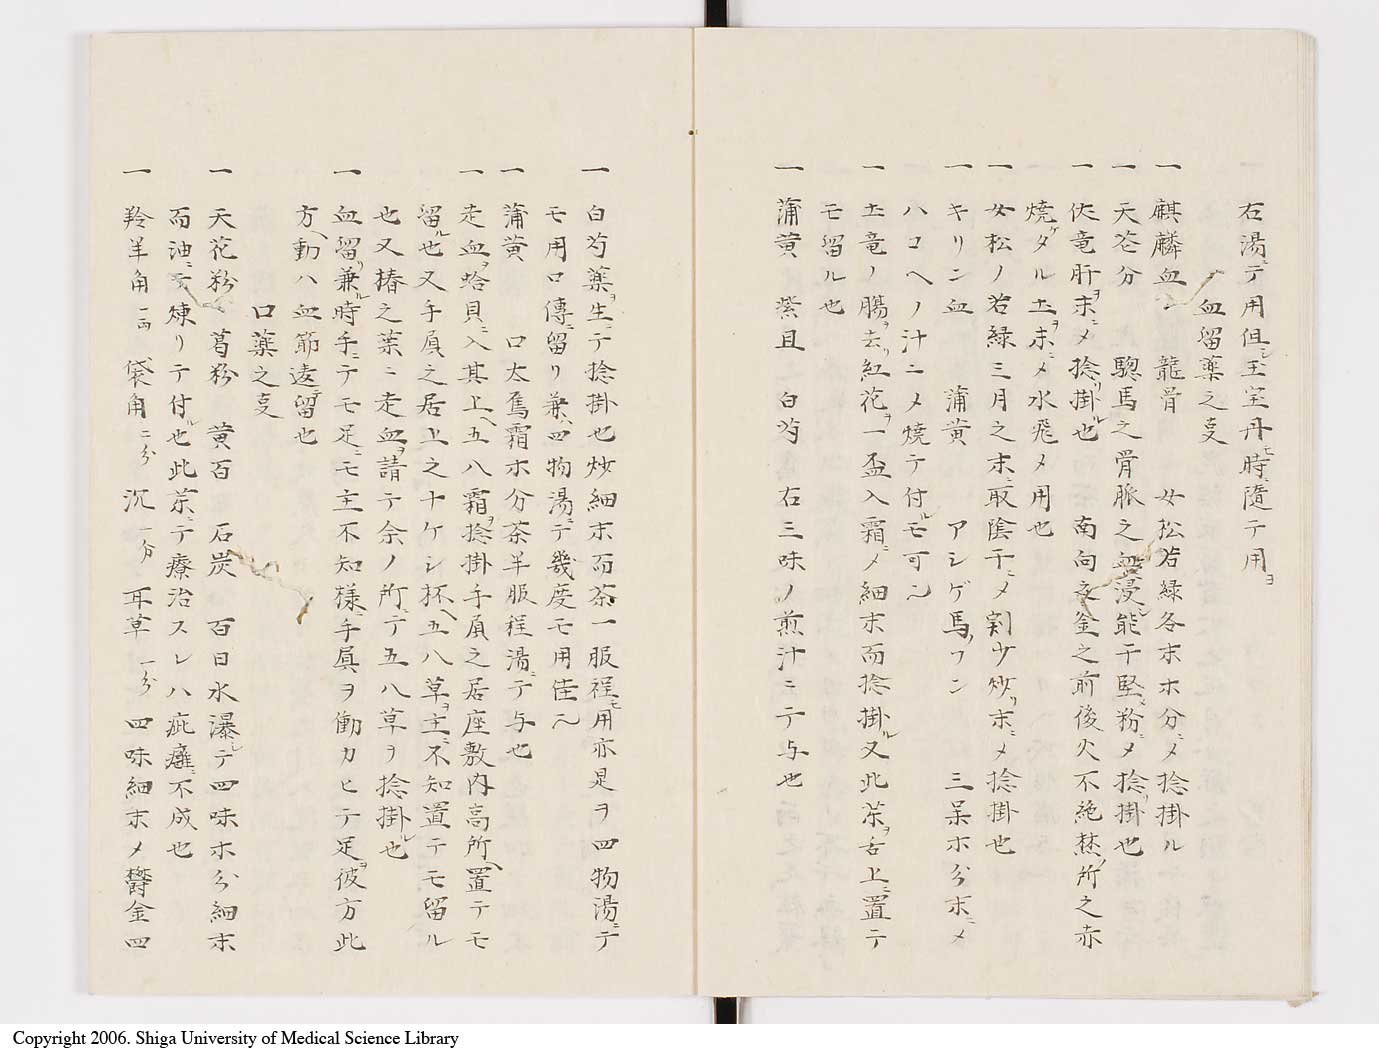 右湯ニテ用但玉宝丹モ時ニ隨テ用ヲ
血留薬之叓
一 麒麟血 龍骨 女松若緑各末ホ分ニメ捻掛ル
一 天花分 驄馬之骨脈之血浸能干堅粉ニメ捻掛也
一 伏竜肝ヲ末ニメ捻リ掛ル也 南向之釜之前後火不絶焚所之赤
焼ケタル土ヲ末ニメ水飛メ用也
一 女松ノ若緑三月之末ニ取陰干ニメ割少炒リ末ニメ捻掛也
一 キリン血 蒲黄 アシゲ馬ノフン 三呆ホ分末ニメ
ハコヘノ汁ニメ焼テ付ルモ可ン
一 土竜ノ腸ヲ去リ紅花ヲ一盃入霜ニメ細末而捻掛ル又此茶ヲ舌上ニ置テ
モ留ル也
一 蒲黄 紫且 白芍 右三味ノ煎汁ニテ与也
一 白芍薬生ヲニテ捻掛也炒細末而茶一服程モ用亦是ヲ四物湯ニテ
モ用口傳ニ留リ兼ハ四物湯ニテ幾度モ用佳ン
一 蒲黄 口太鳥霜ホ分茶半服程湯ニテ与也
一 走血ヲ蛤貝ニ入其上ヘ五八霜ヲ捻掛手負之居座敷内高所ヘ置テモ
留ル也又手負之居上之ナケシ抔ヘ五八草ヲ主ニ不知置テモ留ル
也又椿之葉ニ走血ヲ請テ余ノ所ニテ五八草ヲ捻掛レ也
一 血留リ兼ル時手ニテモ足ニモ主不知様ニ手負ヲ働カヒテ足ヲ彼方此
方ヘ動ハ血節違テ留也
口薬之叓
一 天花粉 葛粉 黄百 石炭 百日水瀑シテ四味ホ分細末
而油ニテ煉リテ付ル也此茶ニテ療治スレハ疵癰ニ不成也
一 羚羊角一両 袋角二分 沉一分 耳草一分 四味細末メ欝金四